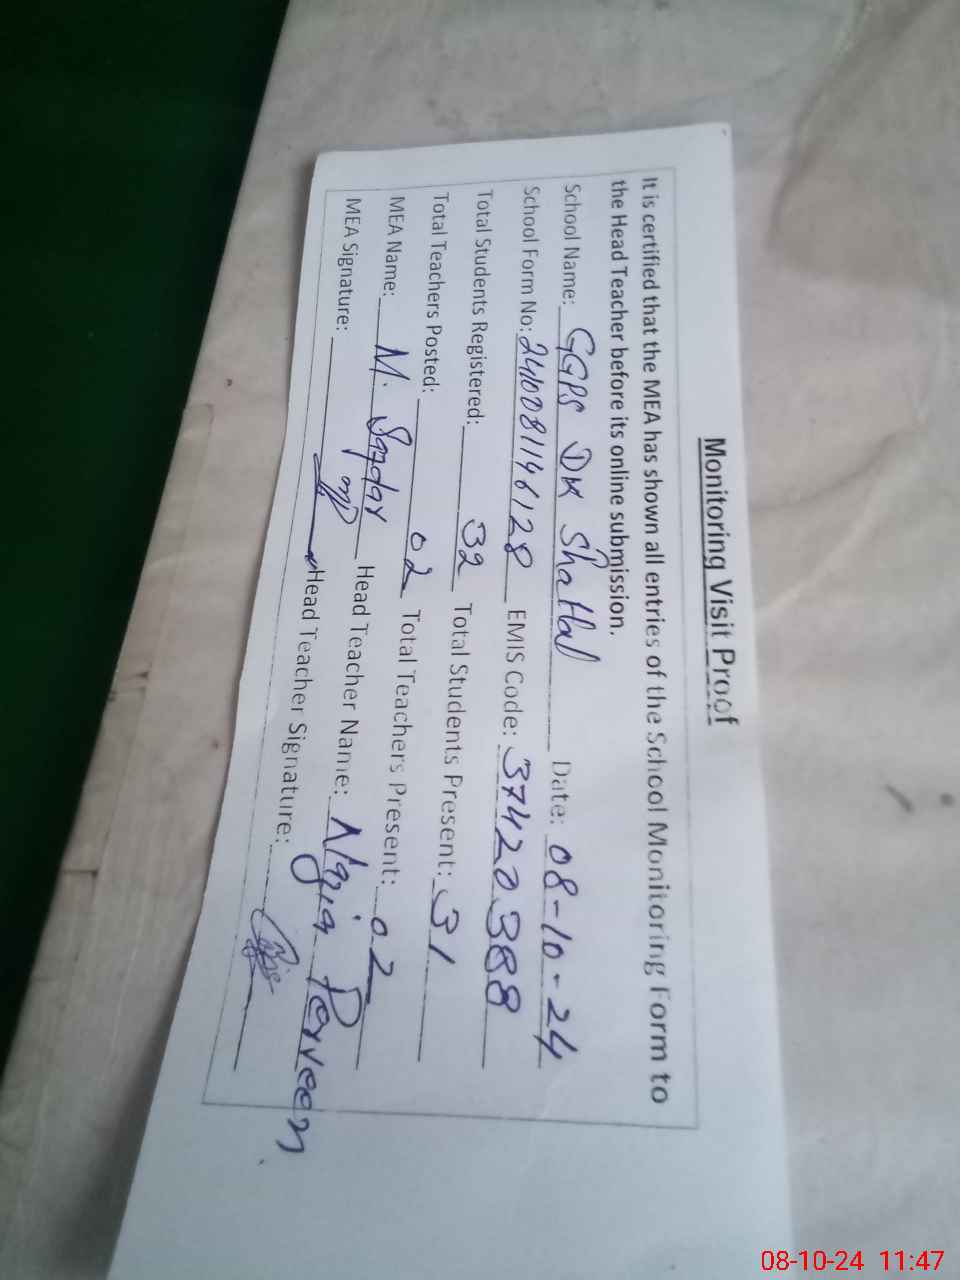 Monitoring Visit Proof
It is certified that the MEA has shown all entries of the School Monitoring Form to
the Head Teacher before its online submission.
School Name: GGPS DK Shattal Date: 08-10-24
School Form No: 2410081146128 EMIS Code: 37420388
Total Students Registered: 32 Total Students Present: 31
Total Teachers Posted: 02 Total Teachers Present: 02
MEA Name: M. Safdar Head Teacher Name: Nazia Parveen
MEA Signature: Head Teacher Signature:
08-10-24 11:47